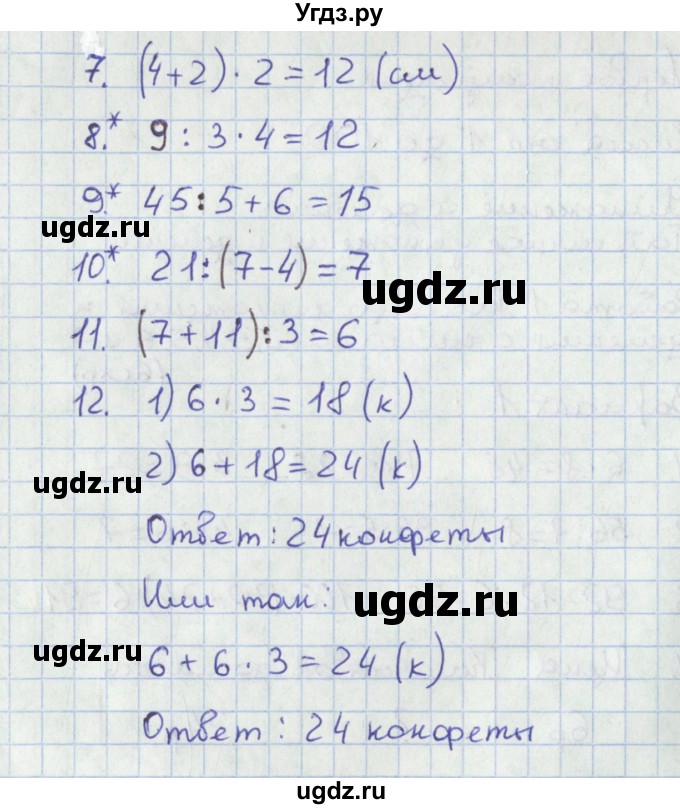 Угдз.ру
7. (4+2) · 2 = 12 (см)
8.* 9 : 3 · 4 = 12
9.* 45 : 5 + 6 = 15
ugdz.ru
10.* 21 : (7-4) = 7
ugdz.ru
11. (7+11) : 3 = 6
12. 1) 6 · 3 = 18 (к)
2) 6 + 18 = 24 (к)
ugdz.ru
Ответ : 24 конфеты
Или так:
ugdz.ru
6 + 6 · 3 = 24 (к)
ugdz.ru
Ответ : 24 конфеты
ugdz.ru